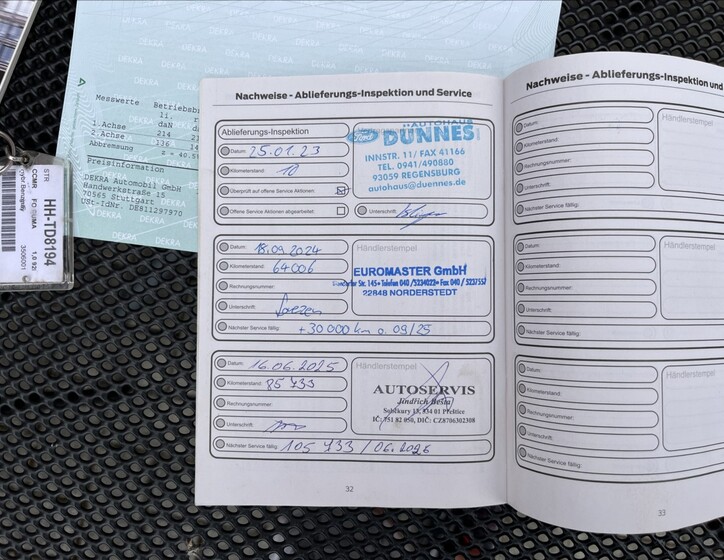 DEKRA
Messwerte Betriebsbr
li.
daN
1.Achse 214
2.Achse 136
Abbremsung
Preisinformation
DEKRA Automobil GmbH
Handwerkstraße 15
70565 Stuttgart
USt-IdNr. DE811297970
STR
HH-TD8194
CCMR FO PUMA
3506001
Nachweise - Ablieferungs-Inspektion und Service
Ablieferungs-Inspektion
Datum: 25.01.23
Kilometerstand: 10
Überprüft auf offene Service Aktionen:
Offene Service Aktionen abgearbeitet:
AUTOHAUS
DÜNNES
INNSTR. 11/ FAX 41166
TEL. 0941/490880
93059 REGENSBURG
autohaus@duennes.de
Unterschrift:
Datum: 18.09.2024
Kilometerstand: 64006
Rechnungsnummer:
Unterschrift:
Nächster Service fällig: +30 000 km o. 09/25
Händlerstempel
EUROMASTER GmbH
Str. 145 • Telefon 040 /5234022 • Fax 040 / 5237557
22848 NORDERSTEDT
Datum: 16.06.2025
Kilometerstand: 85 733
Rechnungsnummer:
Unterschrift:
Nächster Service fällig: 105 733 / 06.2026
Händlerstempel
AUTOSERVIS
Jindřich Bešta
13, 334 01 Přeštice
IČ: 751 82 050, DIČ: CZ8706302308
32
Nachweise - Ablieferungs-Inspektion und
Datum:
Kilometerstand:
Rechnungsnummer:
Unterschrift:
Nächster Service fällig:
Händlerstempel
Datum:
Kilometerstand:
Rechnungsnummer:
Unterschrift:
Nächster Service fällig:
Händlerstempel
Datum:
Kilometerstand:
Rechnungsnummer:
Unterschrift:
Nächster Service fällig:
Händlerstempel
33